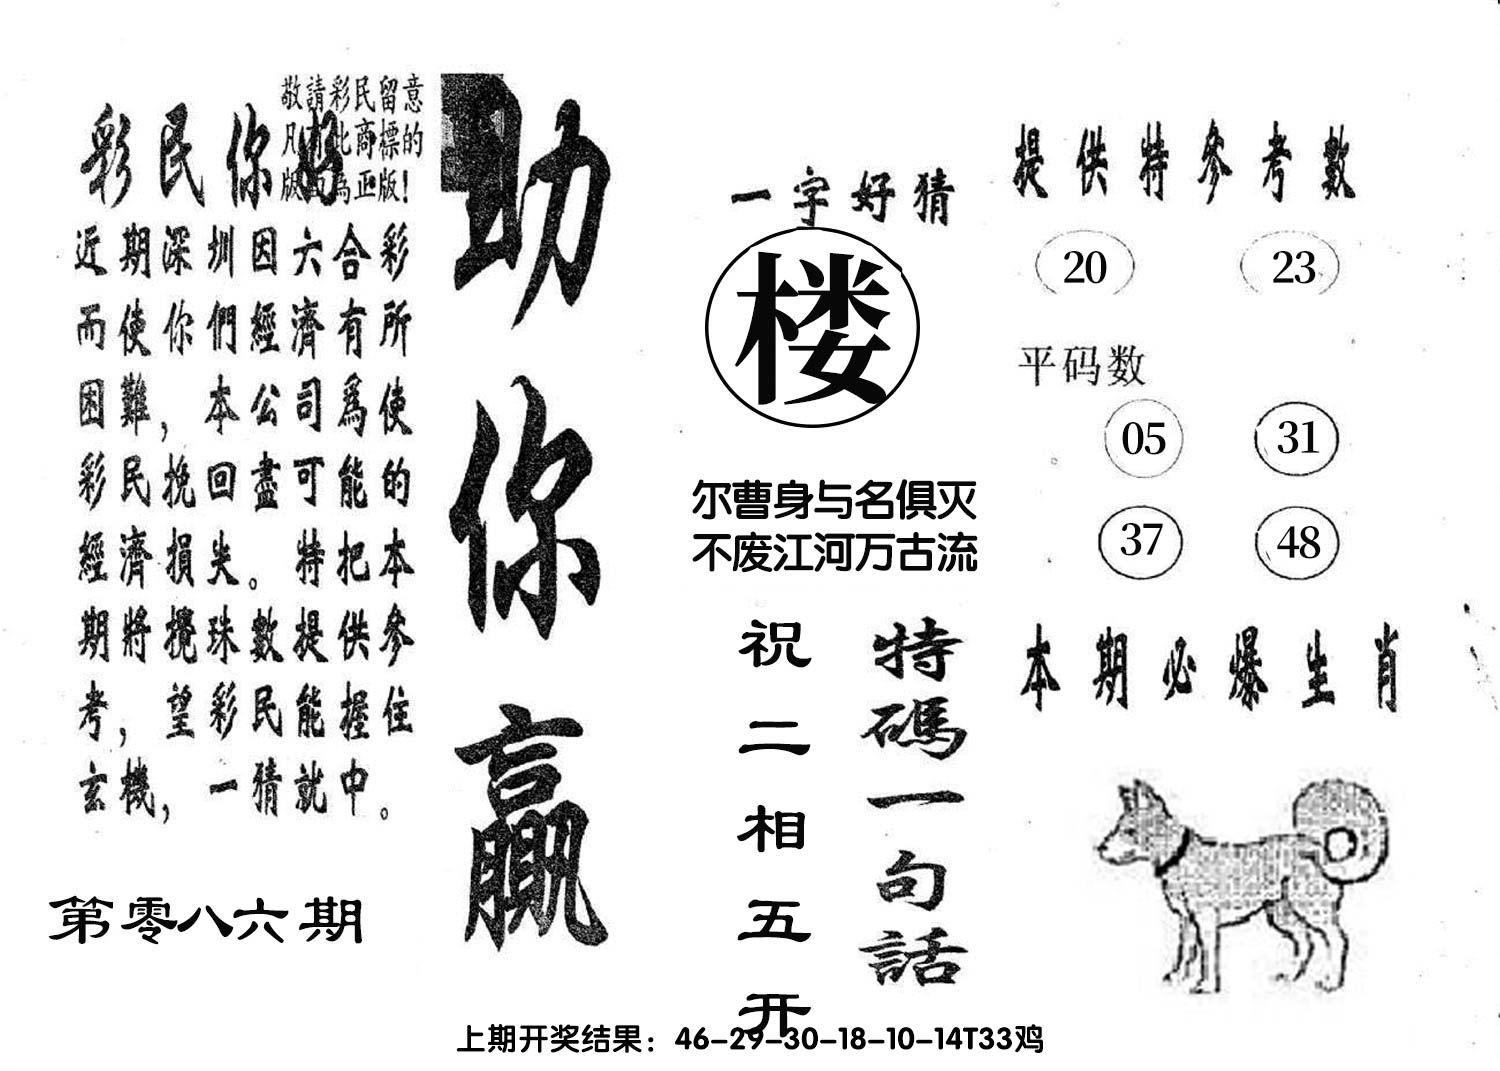 敬請彩民留意
凡有此商標的
版面為正版!
彩民你好
近期深圳因六合彩
而使你們經濟有所
困難，本公司爲使
彩民挽回盡可能的
經濟損失。特把本
期將攪珠數提供參
考，望彩民能握住
玄機，一猜就中。
第零八六期
助你贏
一字好猜
楼
尔曹身与名俱灭
不废江河万古流
特碼一句話
祝二相五开
提供特參考數
20 23
平码数
05 31
37 48
本期必爆生肖
上期开奖结果：46-29-30-18-10-14T33鸡